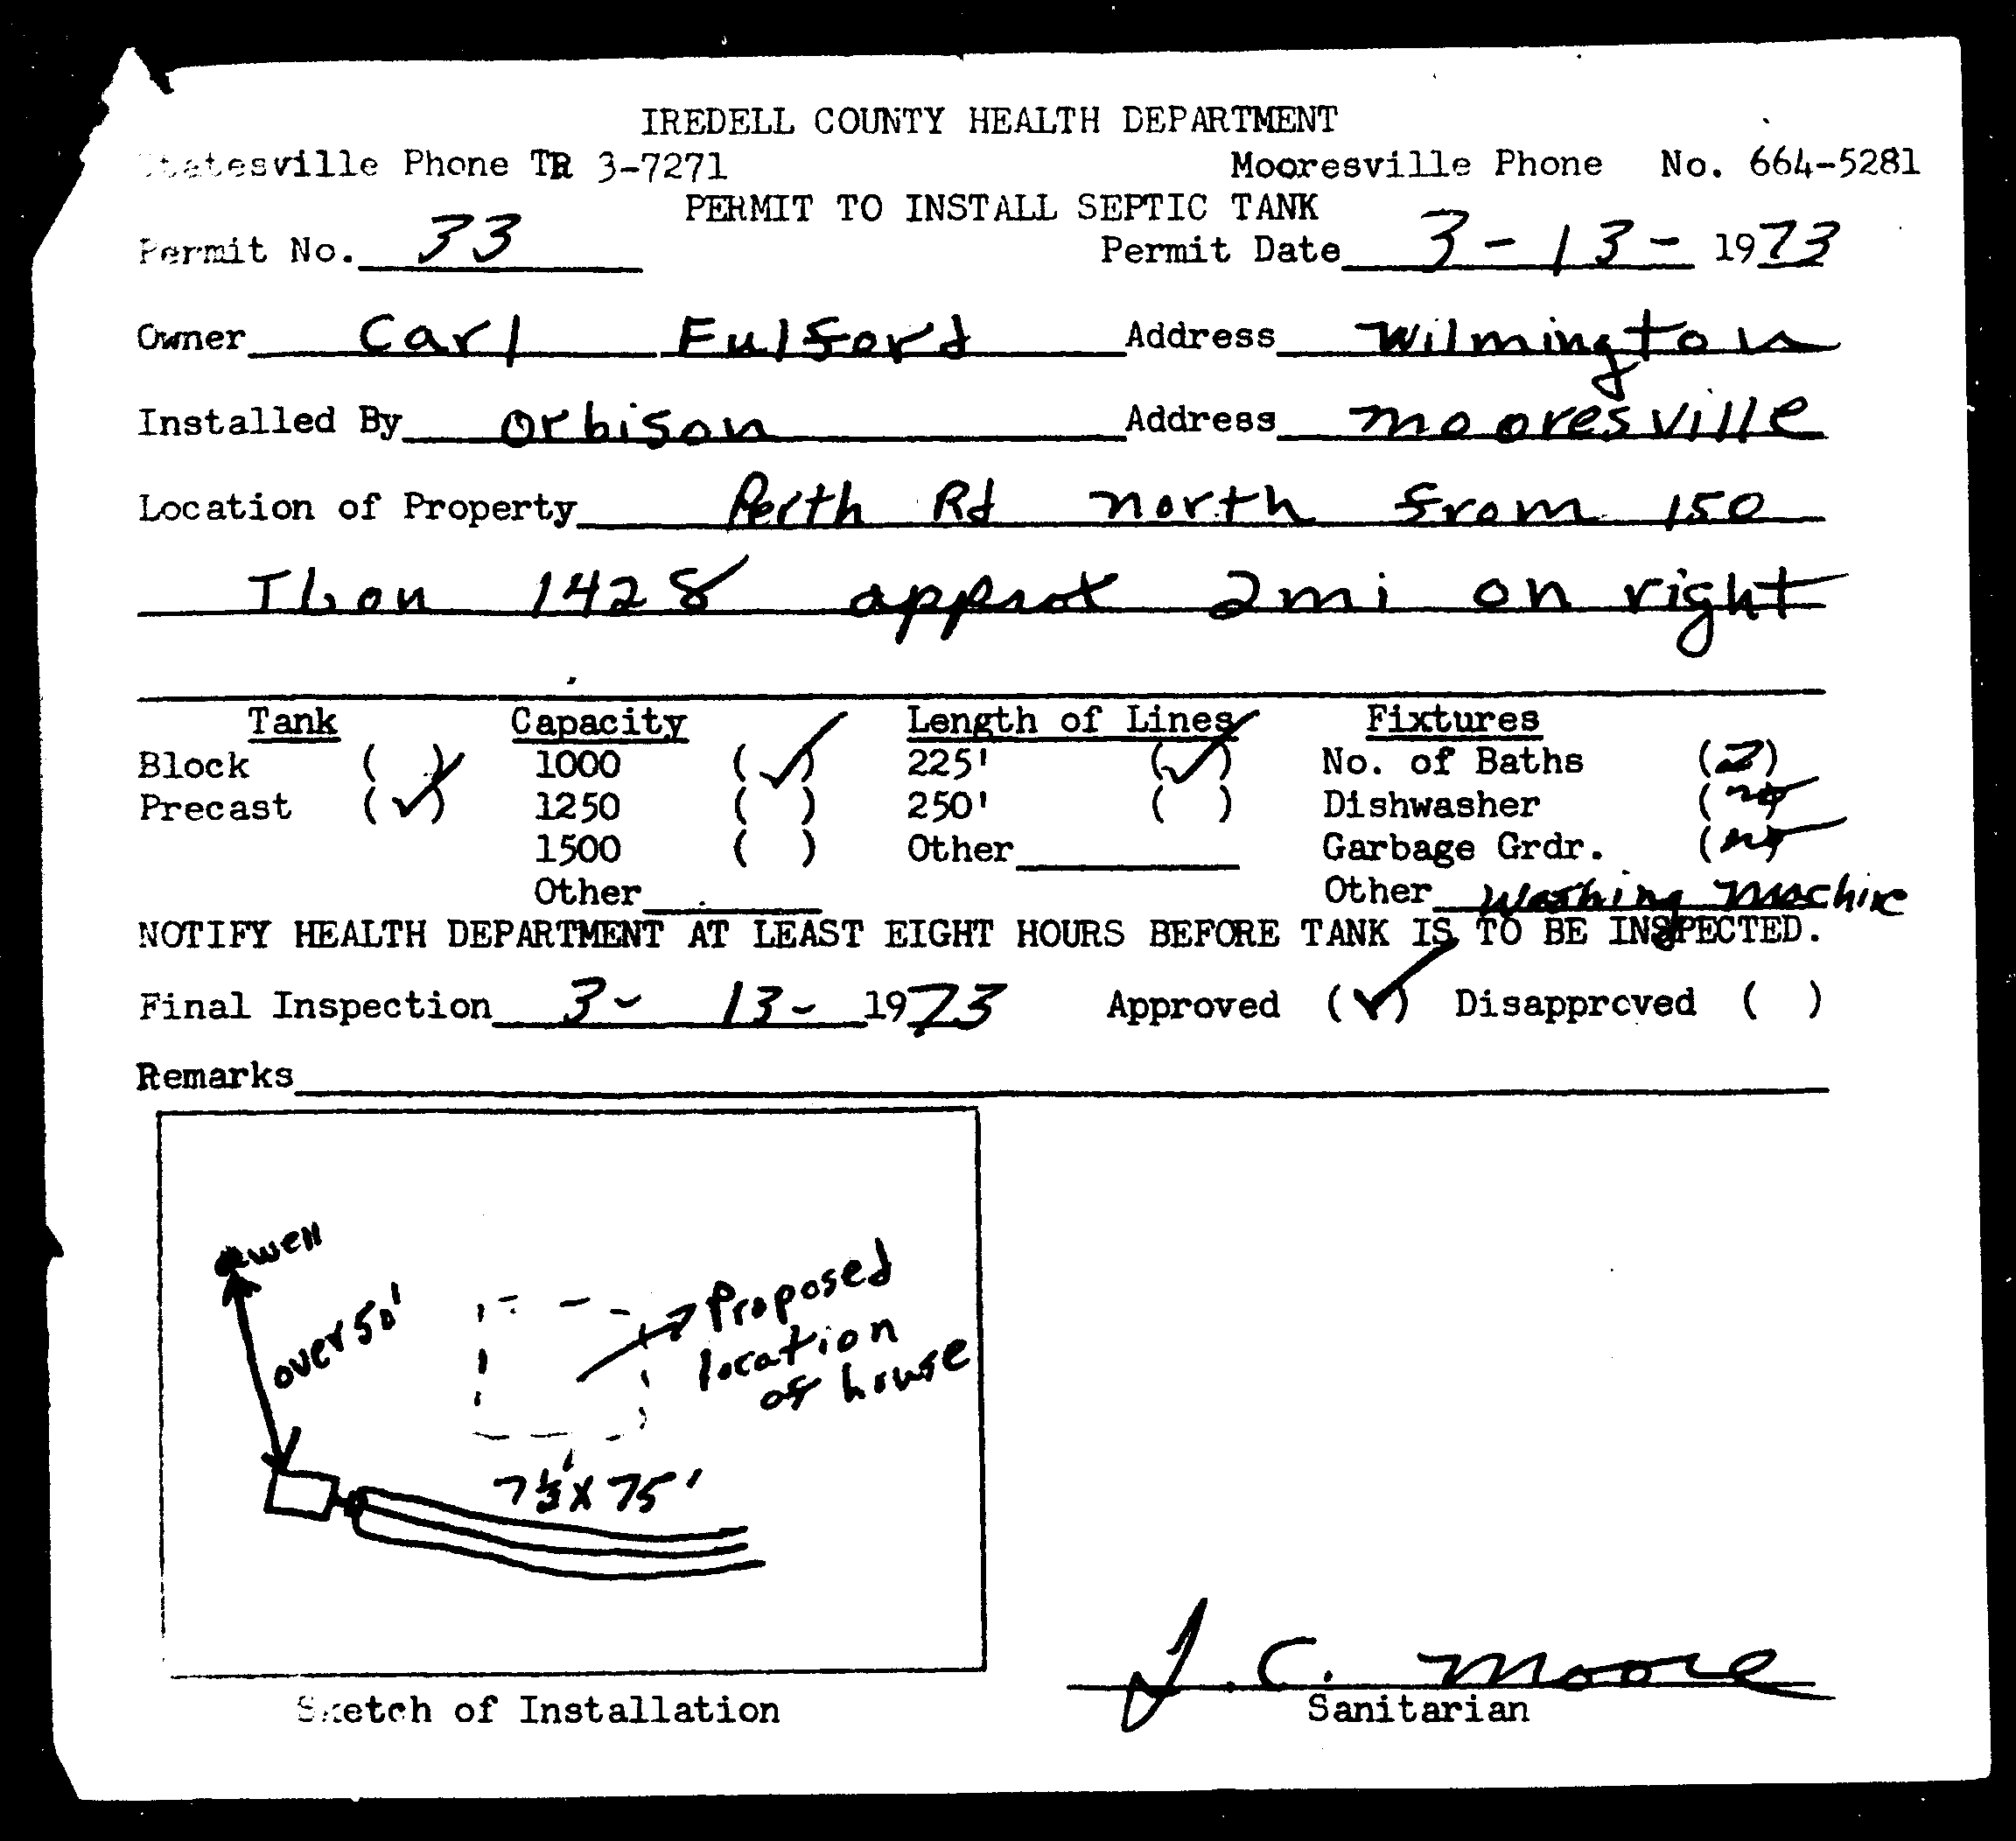 IREDELL COUNTY HEALTH DEPARTMENT
Statesville Phone TR 3-7271 Mooresville Phone No. 664-5281
PERMIT TO INSTALL SEPTIC TANK
Permit No. 33 Permit Date 3-13-1973
Owner Carl Fulford Address Wilmington
Installed By Orbison Address mooresville
Location of Property Perth Rd north from 150
TL on 1428 approx 2mi on right
Tank Capacity Length of Lines Fixtures
Block ( ) 1000 (✓) 225' (✓) No. of Baths (2)
Precast (✓) 1250 ( ) 250' ( ) Dishwasher (no)
1500 ( ) Other Garbage Grdr. (no)
Other Other Washing Machine
NOTIFY HEALTH DEPARTMENT AT LEAST EIGHT HOURS BEFORE TANK IS TO BE INSPECTED.
Final Inspection 3-13-1973 Approved (✓) Disapproved ( )
Remarks
well
over 50'
Proposed
location
of house
75'
J.C. Moore
Sketch of Installation Sanitarian